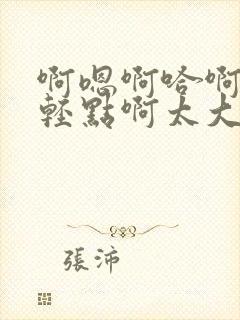 啊嗯啊哈啊
輕點啊太大
張沛